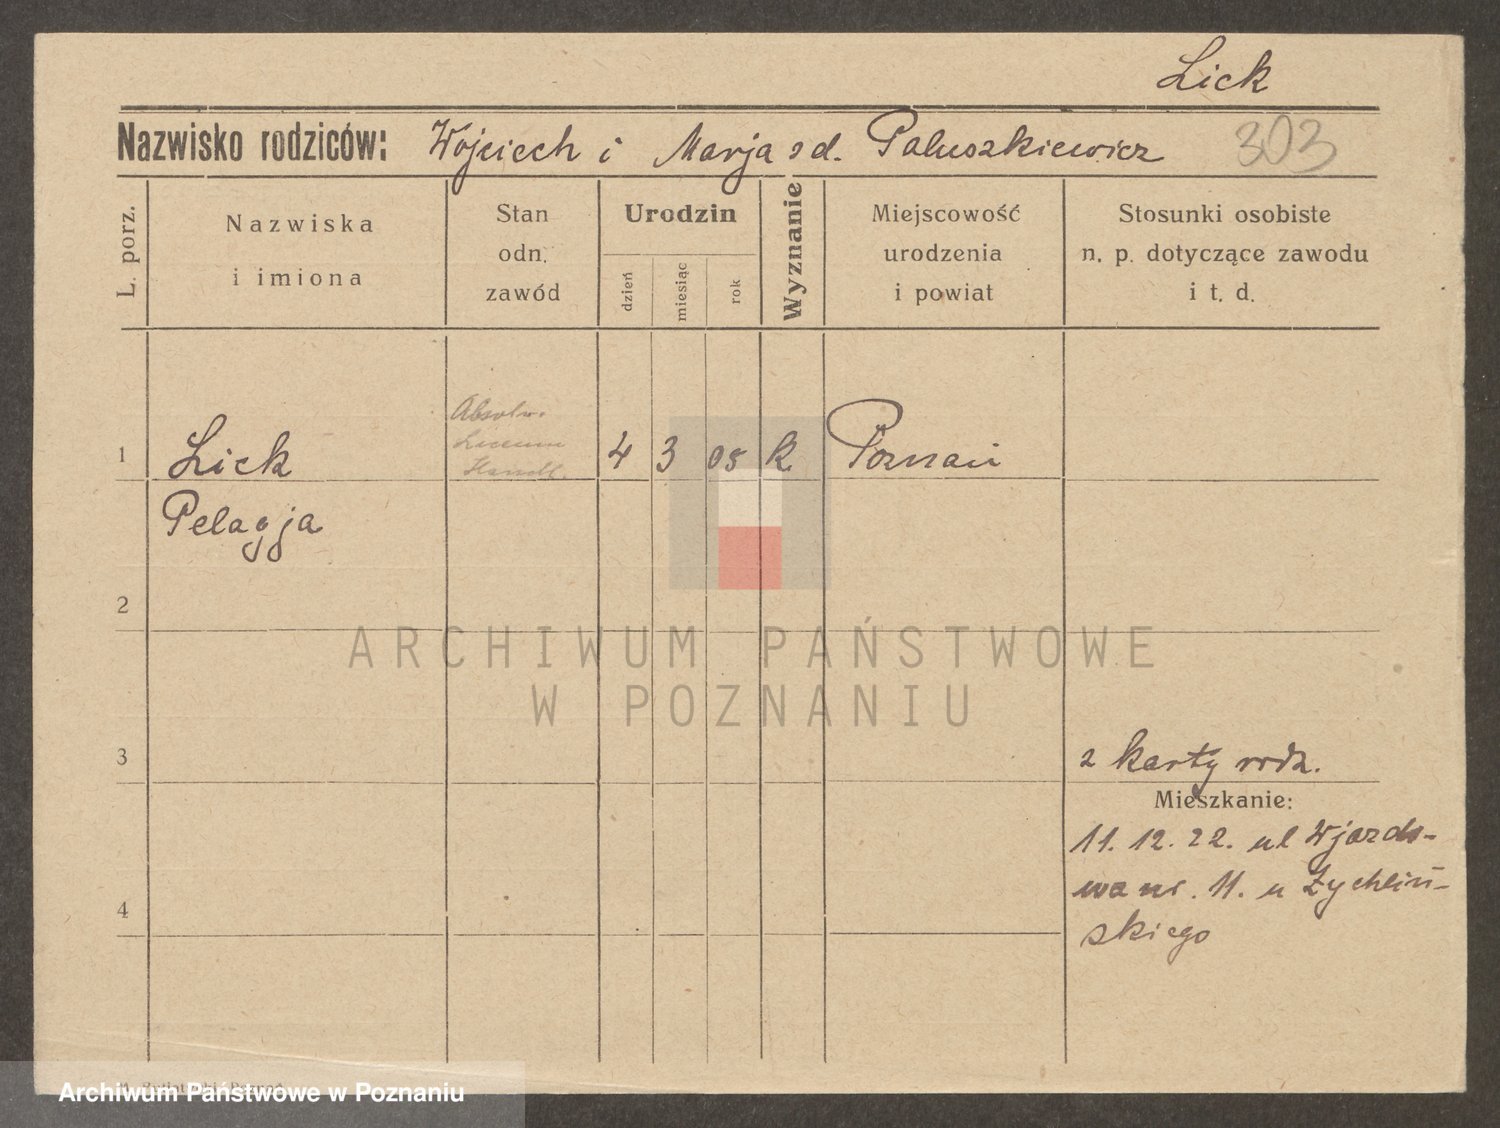 Lick
Nazwisko rodziców: Wojciech i Marja z d. Paluszkiewicz 303
L. porz.
Nazwiska
i imiona
Stan
odn.
zawód
Urodzin
dzień
miesiąc
rok
Wyznanie
Miejscowość
urodzenia
i powiat
Stosunki osobiste
n. p. dotyczące zawodu
i t. d.
Absolw.
Liceum
Handl.
1 Lick 4 3 05 k. Poznań
Pelagja
2
ARCHIWUM PAŃSTWOWE
W POZNANIU
3
z karty rodz.
Mieszkanie:
11. 12. 22. ul Wjazdo-
wa nr. 11. u Żychliń-
skiego
4
Archiwum Państwowe w Poznaniu